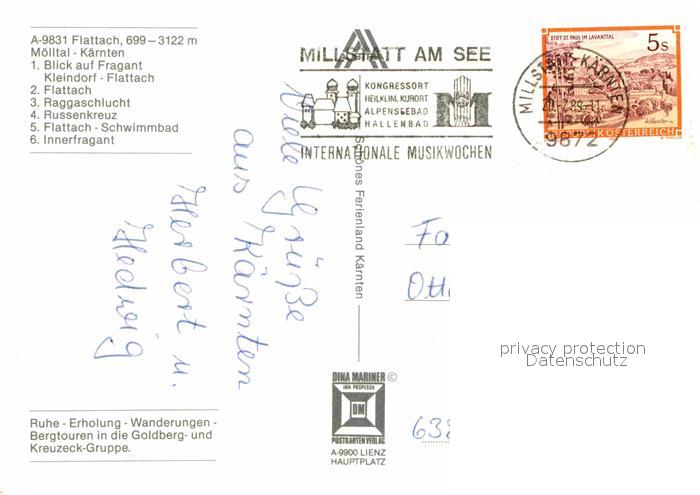 A-9831 Flattach, 699–3122 m
Mölltal - Kärnten
1. Blick auf Fragant
Kleindorf - Flattach
2. Flattach
3. Raggaschlucht
4. Russenkreuz
5. Flattach - Schwimmbad
6. Innerfragant
MILLSTATT AM SEE
KONGRESSORT
HEILKLIM. KURORT
ALPENSEEBAD
HALLENBAD
INTERNATIONALE MUSIKWOCHEN
MILLSTATT, KÄRNTEN
9872
STIFT ST. PAUL IM LAVANTTAL
5 S
REPUBLIK ÖSTERREICH
Viele Grüße
aus Kärnten
Herbert u.
Hedwig
Schönes Ferienland Kärnten
Fa
Ott
638
privacy protection
Datenschutz
DINA MARINER ©
INH. POSPESCH
DM
POSTKARTENVERLAG
A-9900 LIENZ
HAUPTPLATZ
Ruhe - Erholung - Wanderungen -
Bergtouren in die Goldberg- und
Kreuzeck-Gruppe.